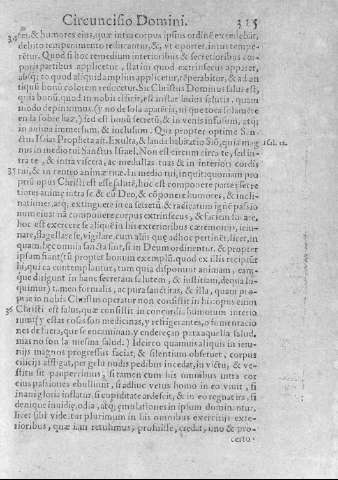 Circuncisio Domini. 315
& humores eius, quæ intra corpus ipsius ordinē excedebāt,
debito temperimento reducantur, &, vt oportet, in tem-
rētur. Quod si hoc remedium interioribus & secretioribus cor-
poris partibus applicetur, statim quod extrinsecus apparet,
absq; eo quod aliquid amplius applicetur, reperabitur, & ad an
tiquū bonū colorem reducetur. Sic Christus Dominus salus est,
quia bonū quod in nobis efficit, est instar huius salutis, quam
modo depinximus. (y no de sola aparēcia, ni que toca solamēte
en la sobre haz,) sed est bonū secretū, & in venis infusum, atq;
in anima immersum, & inclusum. Qua propter optime San-
ctus Isaias Propheta ait. Exulta, & lauda habitatio Siō, quia mag
nus in medio tui Sanctus Israel. Non est circum circa te, sed in-
tra te, & intra viscera, ac medullas tuas & in interiori cordis
37 tui, & in centro animæ tuæ. In medio tui, inquit, quoniam pro
prium opus Christi est esse salutē, hoc est componere partes secre
tiores animę intra se & cū Deo, & cōponere humores, & incli-
nationes, atq; extinguere in ea secretū & radicatum ignē passio
num eius: nā componere corpus extrinsecus, & faciem lauare,
hoc est exercere se aliquē in his exterioribus cæremonijs, ieiu-
nare, flagellare se, vigilare, cum alijs quę adhoc pertinēt, licet, in
quantū hęc omnia sancta sint, si in Deum ordinentur. & propter
ipsum fiant, sit propter bonum exemplū, quod ex illis recipiūt
hi, qui ea contemplantur, tum quia disponunt animam, eam-
que dirigunt in hanc secretam salutem, & institiam, de qua lo-
quimur; tamen formalis, ac pura sanctitas, & illa, quam pro-
priæ in nobis Christus operatur non consistit in his opus: enim
36 Christi est salus, quæ consistit in concordia humorum interio
rum (y estas cosas son medicinas, y refrigerantes, o fomentacio
nes de fuera, que se encaminan y enderezan para aquella salud,
mas no son la mesma salud.) Idcirco quamuis aliquis in ieiu-
nijs magnos progressus faciat, & silentium obseruet, corpus
cilicijs affligat, per gelu nudis pedibus incedat, in victu, & ve-
stitu sit pauperrimus, si tamen cum his omnibus intra cor
eius passiones ebulliunt, si adhuc vetus homo in eo viuit, si
inani gloria inflatur, si cupiditate ardescit, & in eo regnat ira, si
denique inuidię, odia, atq; ęmulationes in ipsum dominantur,
licet sibi videatur plurimum in his omnibus exercitijs exte-
rioribus, quæ iam retulimus, profuisse, credat, imo & pro-
certo
Isai. 12.